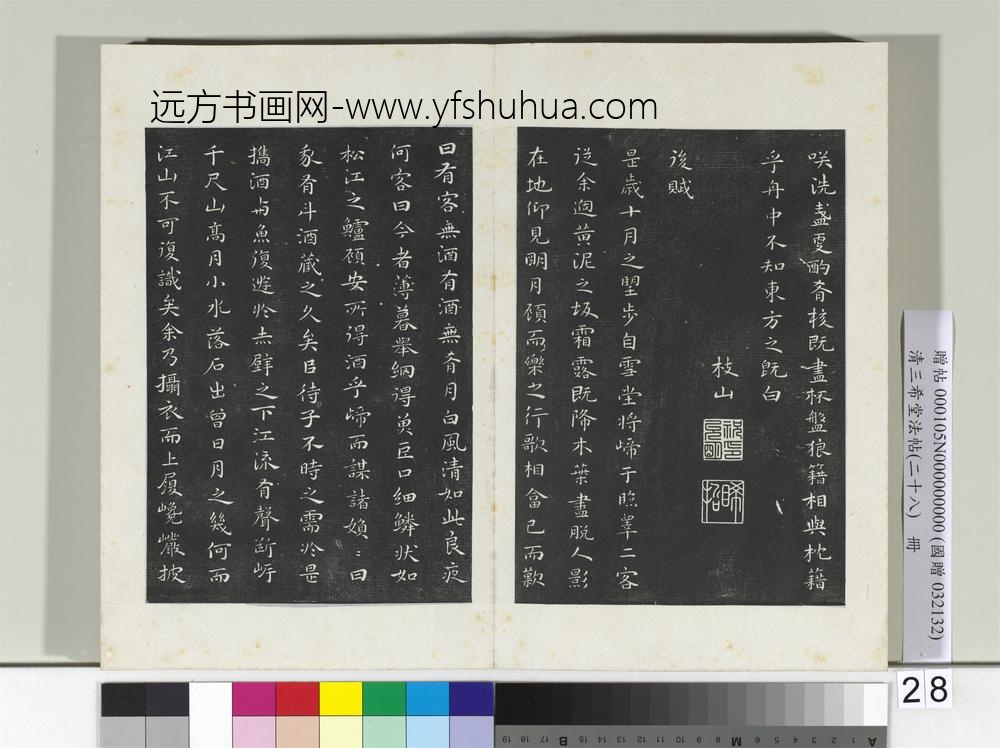 远方书画网-www.yfshuhua.com
咲洗盞更酌肴核既盡杯盤狼籍相與枕籍
乎舟中不知東方之既白
枝山
後賦
是歲十月之望步自雪堂將歸于臨皋二客
從余過黃泥之坂霜露既降木葉盡脫人影
在地仰見明月顧而樂之行歌相畣已而歎
曰有客無酒有酒無肴月白風清如此良夜
何客曰今者薄暮舉網得魚巨口細鱗狀如
松江之鱸顧安所得酒乎歸而謀諸婦〻曰
我有斗酒藏之久矣㠯待子不時之需於是
攜酒与魚復遊於赤壁之下江流有聲斷岸
千尺山高月小水落石出曾日月之幾何而
江山不可復識矣余乃攝衣而上履巉巖披
贈帖 000105N000000000 (國贈 032132)
清三希堂法帖(二十八) 冊
28